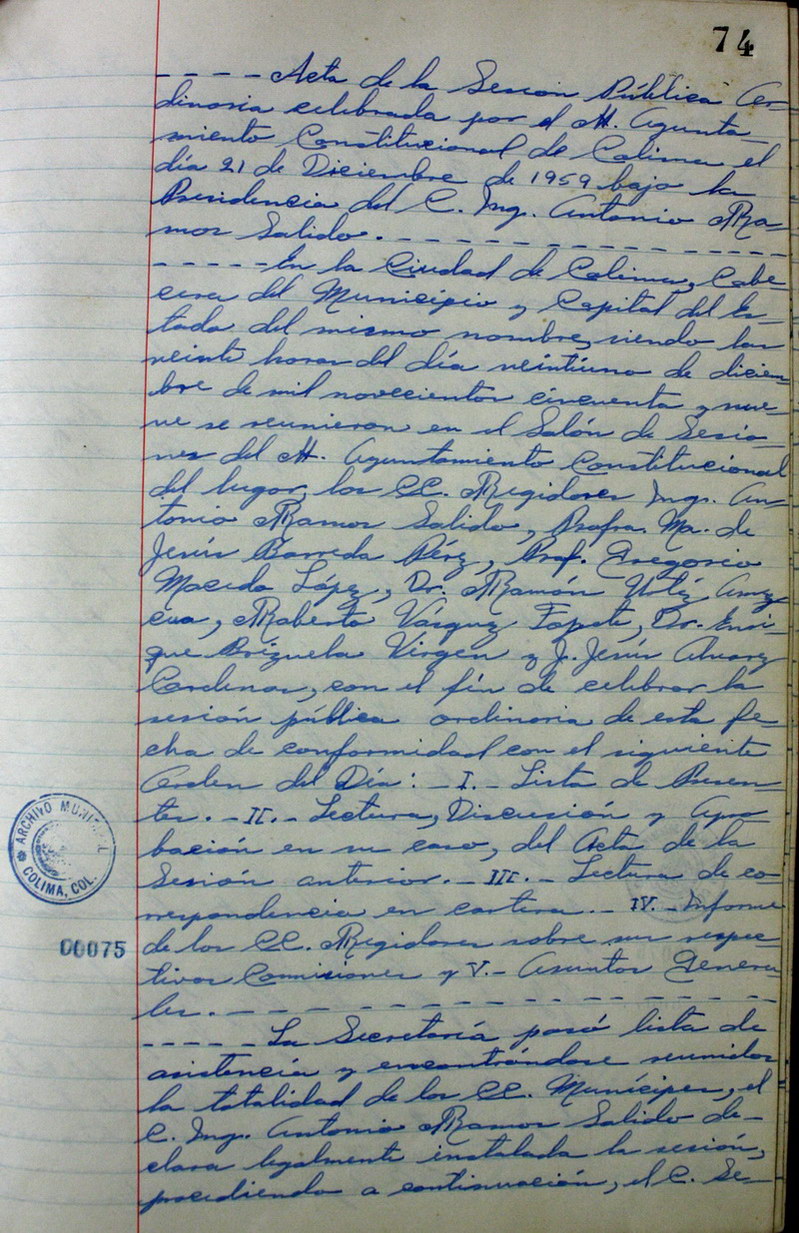 74
- - - - Acta de la Sesión Pública Or-
dinaria celebrada por el H. Ayunta-
miento Constitucional de Colima el
día 21 de Diciembre de 1959 bajo la
Presidencia del C. Ing. Antonio Ra-
mos Salido. - - - - - - - - - - - - -
- - - - En la Ciudad de Colima, Cabe
cera del Municipio y Capital del Es-
tado del mismo nombre, siendo las
veinte horas del día veintiuno de diciem-
bre de mil novecientos cincuenta y nue-
ve se reunieron en el Salón de Sesio-
nes del H. Ayuntamiento Constitucional
del lugar, los CC. Regidores Ings. An-
tonio Ramos Salido, Profra. Ma. de
Jesús Barreda Pérez, Prof. Gregorio
Macedo López, Dr. Ramón Ortíz Amez
cua, Roberto Vázquez Tapete, Dr. Enri-
que Brizuela Virgen y J. Jesús Alvarez
Cardenas, con el fín de celebrar la
sesión pública ordinaria de esta fe-
cha de conformidad con el siguiente
Orden del Día: - I. - Lista de Presen-
tes. - II. - Lectura, Discusión y Apro
bación en su caso, del Acta de la
Sesión anterior. - III. - Lectura de co-
rrespondencia en cartera. - IV. - Informe
de los CC. Regidores sobre sus respec
tivas Comisiones y V. - Asuntos Genera
les. - - - - - - - - - - - - - - -
- - - - La Secretaría pasó lista de
asistencia y encontrándose reunidos
la totalidad de los CC. Munícipes, el
C. Ing. Antonio Ramos Salido de-
clara legalmente instalada la sesión,
procediendo a continuación, el C. Se-
ARCHIVO MUNICIPAL
COLIMA, COL.
00075